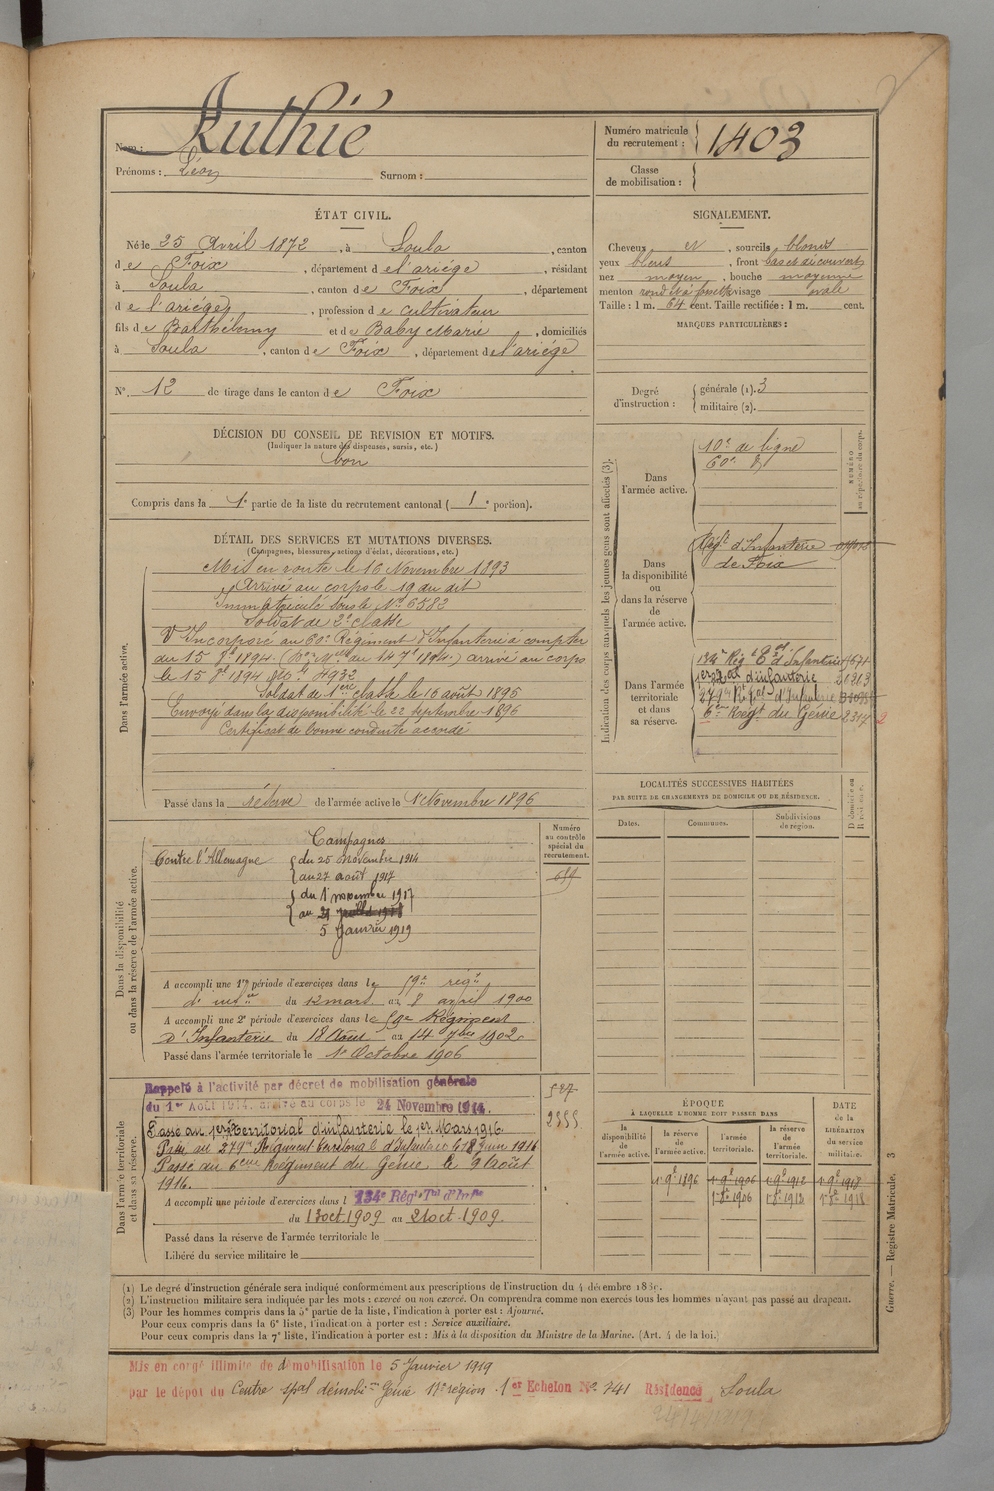 Nom : Ruthié
Prénoms : Léon Surnom :
Numéro matricule du recrutement : 1403
Classe de mobilisation :
ÉTAT CIVIL.
Né le 25 Avril 1872, à Soula, canton
de Foix, département de l'ariége, résidant
à Soula, canton de Foix, département
de l'ariége, profession de cultivateur
fils de Barthélemy et de Baby Marie, domiciliés
à Soula, canton de Foix, département de l'ariége
N° 12 de tirage dans le canton de Foix
SIGNALEMENT.
Cheveux et, sourcils blonds
yeux bleus, front bas et découvert
nez moyen, bouche moyenne
menton rond et à fossette visage ovale
Taille : 1 m. 64 cent. Taille rectifiée : 1 m. cent.
MARQUES PARTICULIÈRES :
Degré d'instruction : générale (1). 3
militaire (2).
DÉCISION DU CONSEIL DE REVISION ET MOTIFS.
(Indiquer la nature des dispenses, sursis, etc.)
bon
Compris dans la 1e partie de la liste du recrutement cantonal ( 1e portion).
DÉTAIL DES SERVICES ET MUTATIONS DIVERSES.
(Campagnes, blessures, actions d'éclat, décorations, etc.)
Dans l'armée active.
Mis en route le 16 Novembre 1893
Arrivé au corps le 19 du dit
Immatriculé sous le No 6582
Soldat de 2e classe
Incorporé au 60e Régiment d'Infanterie à compter
du 15 1894. ( du 14 1894.) arrivé au corps
le 15 1894 No 4932
Soldat de 1ere classe le 16 août 1895
Envoyé dans la disponibilité le 22 septembre 1896
Certificat de bonne conduite accordé
Passé dans la réserve de l'armée active le 1er Novembre 1896
Indication des corps auxquels les jeunes gens sont affectés (3).
NUMÉRO au répertoire du corps.
Dans l'armée active.
10e de ligne
60e d
Dans la disponibilité ou dans la réserve de l'armée active.
Régt d'Infanterie
de Foix
Dans l'armée territoriale et dans sa réserve.
134e Rég t d'Infanterie
1er al d'infanterie 21313
279e Rgt d'Infanterie
6eme Régt du Génie
LOCALITÉS SUCCESSIVES HABITÉES
PAR SUITE DE CHANGEMENTS DE DOMICILE OU DE RÉSIDENCE.
Dates. Communes. Subdivisions de région. D domicile ou R résidence.
Dans la disponibilité ou dans la réserve de l'armée active.
Numéro au contrôle spécial du recrutement.
Campagnes
Contre l'Allemagne du 25 novembre 1914
au 27 août 1917
du 1er novembre 1917
au
5 Janvier 1919
A accompli une 1re période d'exercices dans le 59e régt
d'infie du 12 mars au 8 avril 1900
A accompli une 2e période d'exercices dans le 59e Régiment
d'Infanterie du 18 Août au 14 7bre 1902
Passé dans l'armée territoriale le 1er Octobre 1906
Dans l'armée territoriale et dans sa réserve.
Rappelé à l'activité par décret de mobilisation générale
du 1er Août 1914, arrivé au corps le 24 Novembre 1914.
Passé au 1er territorial d'infanterie le 1er Mars 1916.
Passé au 279e Régiment territorial d'Infanterie le 18 Juin 1916
Passé au 6eme Régiment du Génie le 9 Août
1916.
A accompli une période d'exercices dans l 134e Régt Tal d'Infie
du 13 oct. 1909 au 21 oct. 1909.
Passé dans la réserve de l'armée territoriale le
Libéré du service militaire le
527
2355
ÉPOQUE
À LAQUELLE L'HOMME DOIT PASSER DANS
DATE de la LIBÉRATION du service militaire.
la disponibilité de l'armée active. la réserve de l'armée active. l'armée territoriale. la réserve de l'armée territoriale.
1896 1906 1912 1918
1906 1912 1918
Guerre. — Registre Matricule. 3
(1) Le degré d'instruction générale sera indiqué conformément aux prescriptions de l'instruction du 4 décembre 1889.
(2) L'instruction militaire sera indiquée par les mots : exercé ou non exercé. On comprendra comme non exercés tous les hommes n'ayant pas passé au drapeau.
(3) Pour les hommes compris dans la 5e partie de la liste, l'indication à porter est : Ajourné.
Pour ceux compris dans la 6e liste, l'indication à porter est : Service auxiliaire.
Pour ceux compris dans la 7e liste, l'indication à porter est : Mis à la disposition du Ministre de la Marine. (Art. 4 de la loi.)
Mis en congé illimité de démobilisation le 5 Janvier 1919
par le dépôt du Centre spal démobon Génie 17e région. 1er Echelon No 741 Résidence Soula